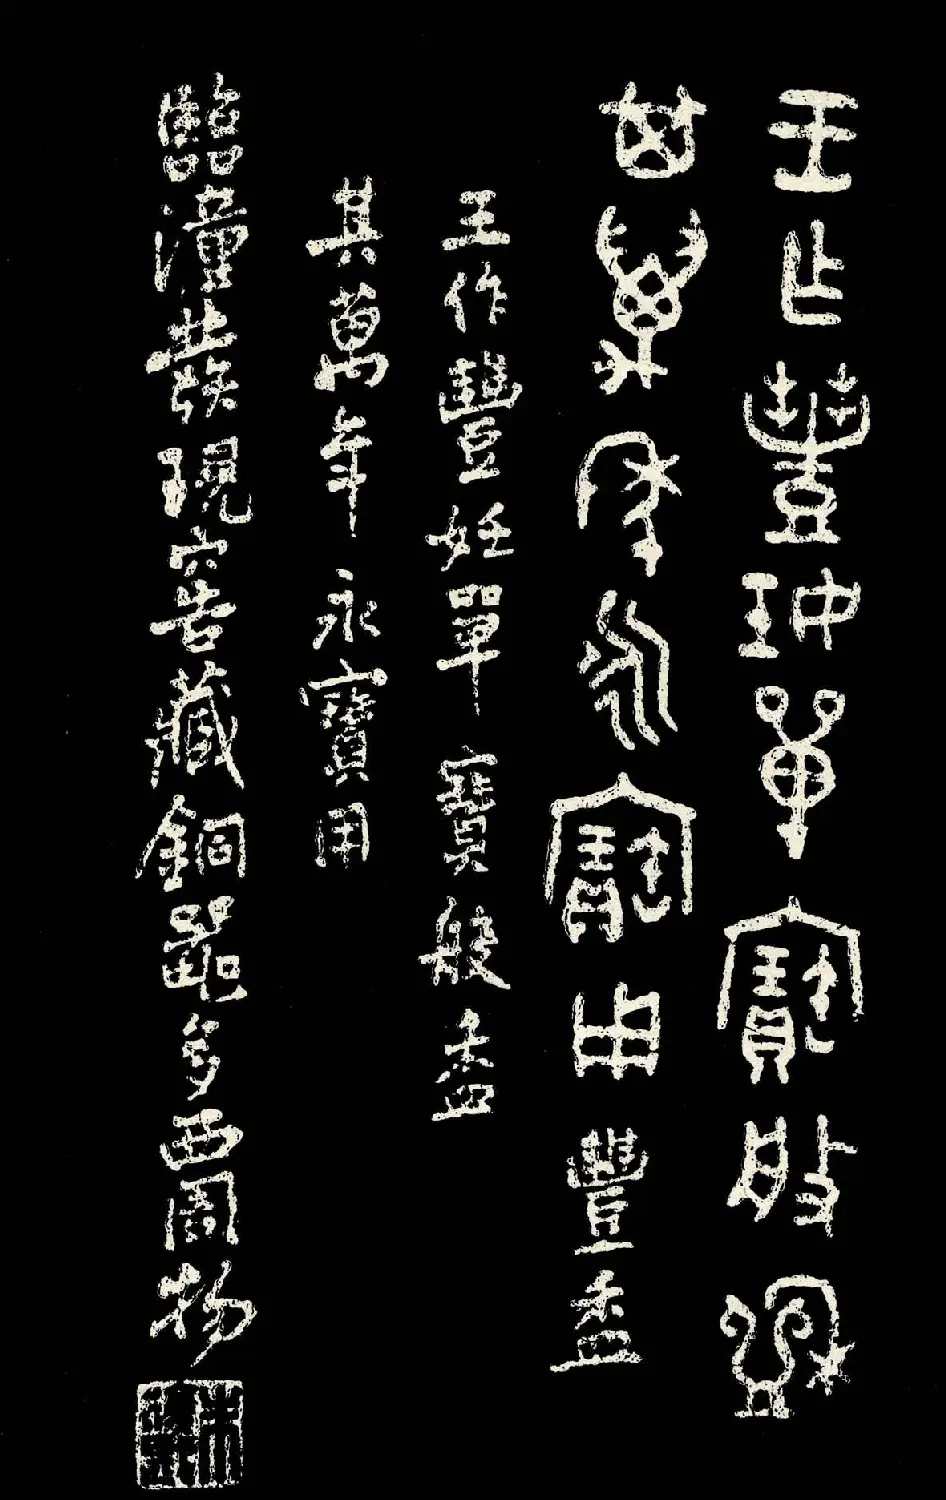 王乍豐妊單寶般盉
其萬年永寶用 豐盉
王作豐妊單寶般盉
其萬年永寶用
臨潼發現窖藏銅器多西周物